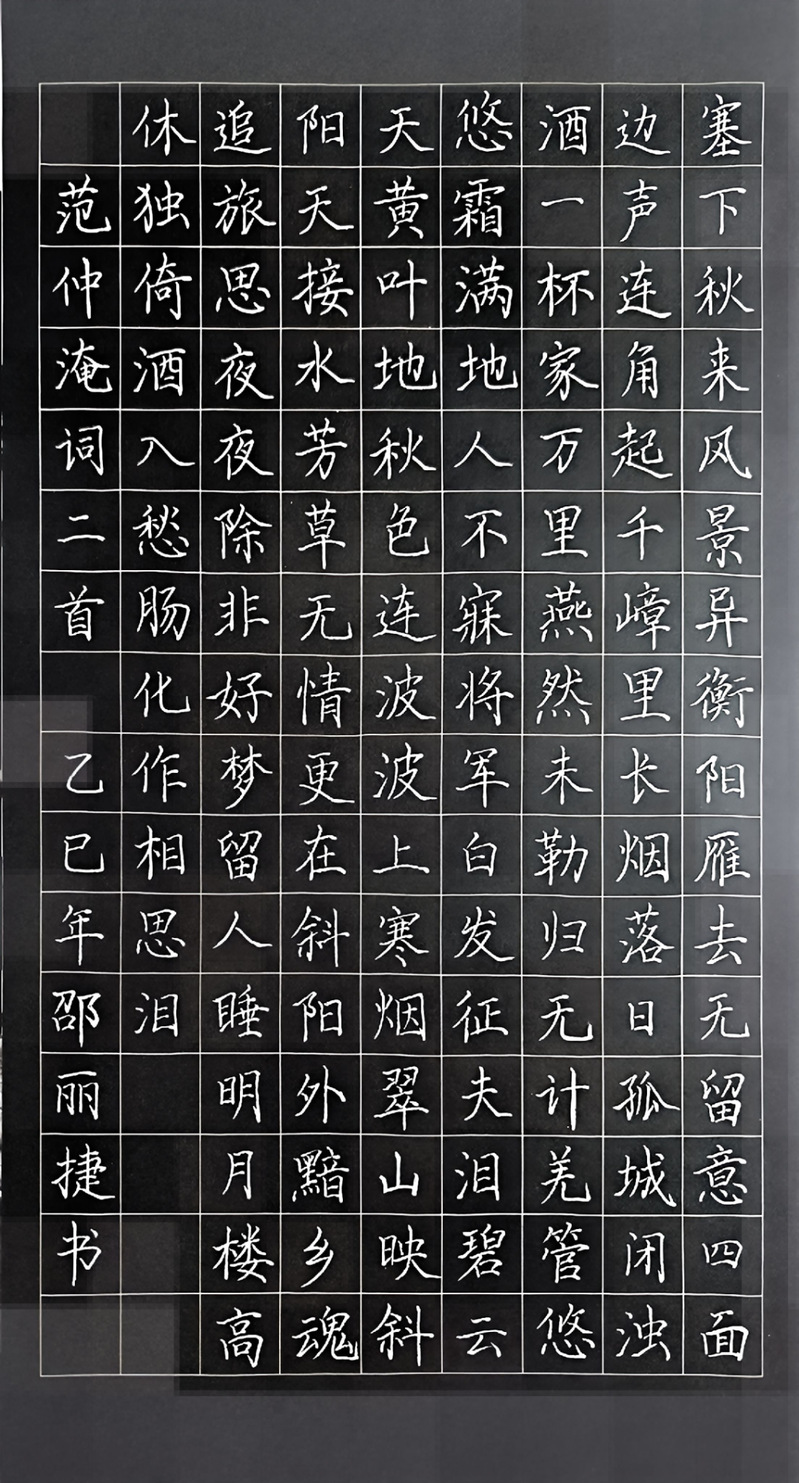 塞下秋来风景异衡阳雁去无留意四面
边声连角起千嶂里长烟落日孤城闭浊
酒一杯家万里燕然未勒归无计羌管悠
悠霜满地人不寐将军白发征夫泪碧云
天黄叶地秋色连波波上寒烟翠山映斜
阳天接水芳草无情更在斜阳外黯乡魂
追旅思夜夜除非好梦留人睡明月楼高
休独倚酒入愁肠化作相思泪
范仲淹词二首 乙巳年邵丽捷书